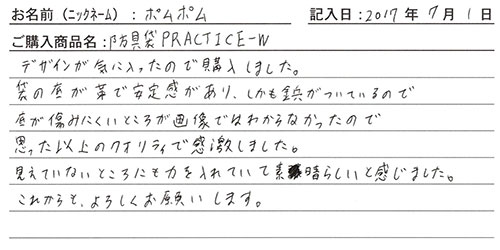 お名前（ニックネーム）: ポムポム 記入日: 2017年7月1日
ご購入商品名: 防具袋PRACTICE-W
デザインが気に入ったので購入しました。
袋の底が革で安定感があり、しかも鋲がついているので
底が傷みにくいところが画像ではわからなかったので
思った以上のクオリティで感激しました。
見えていないところにも力を入れていて素晴らしいと感じました。
これからも、よろしくお願いします。